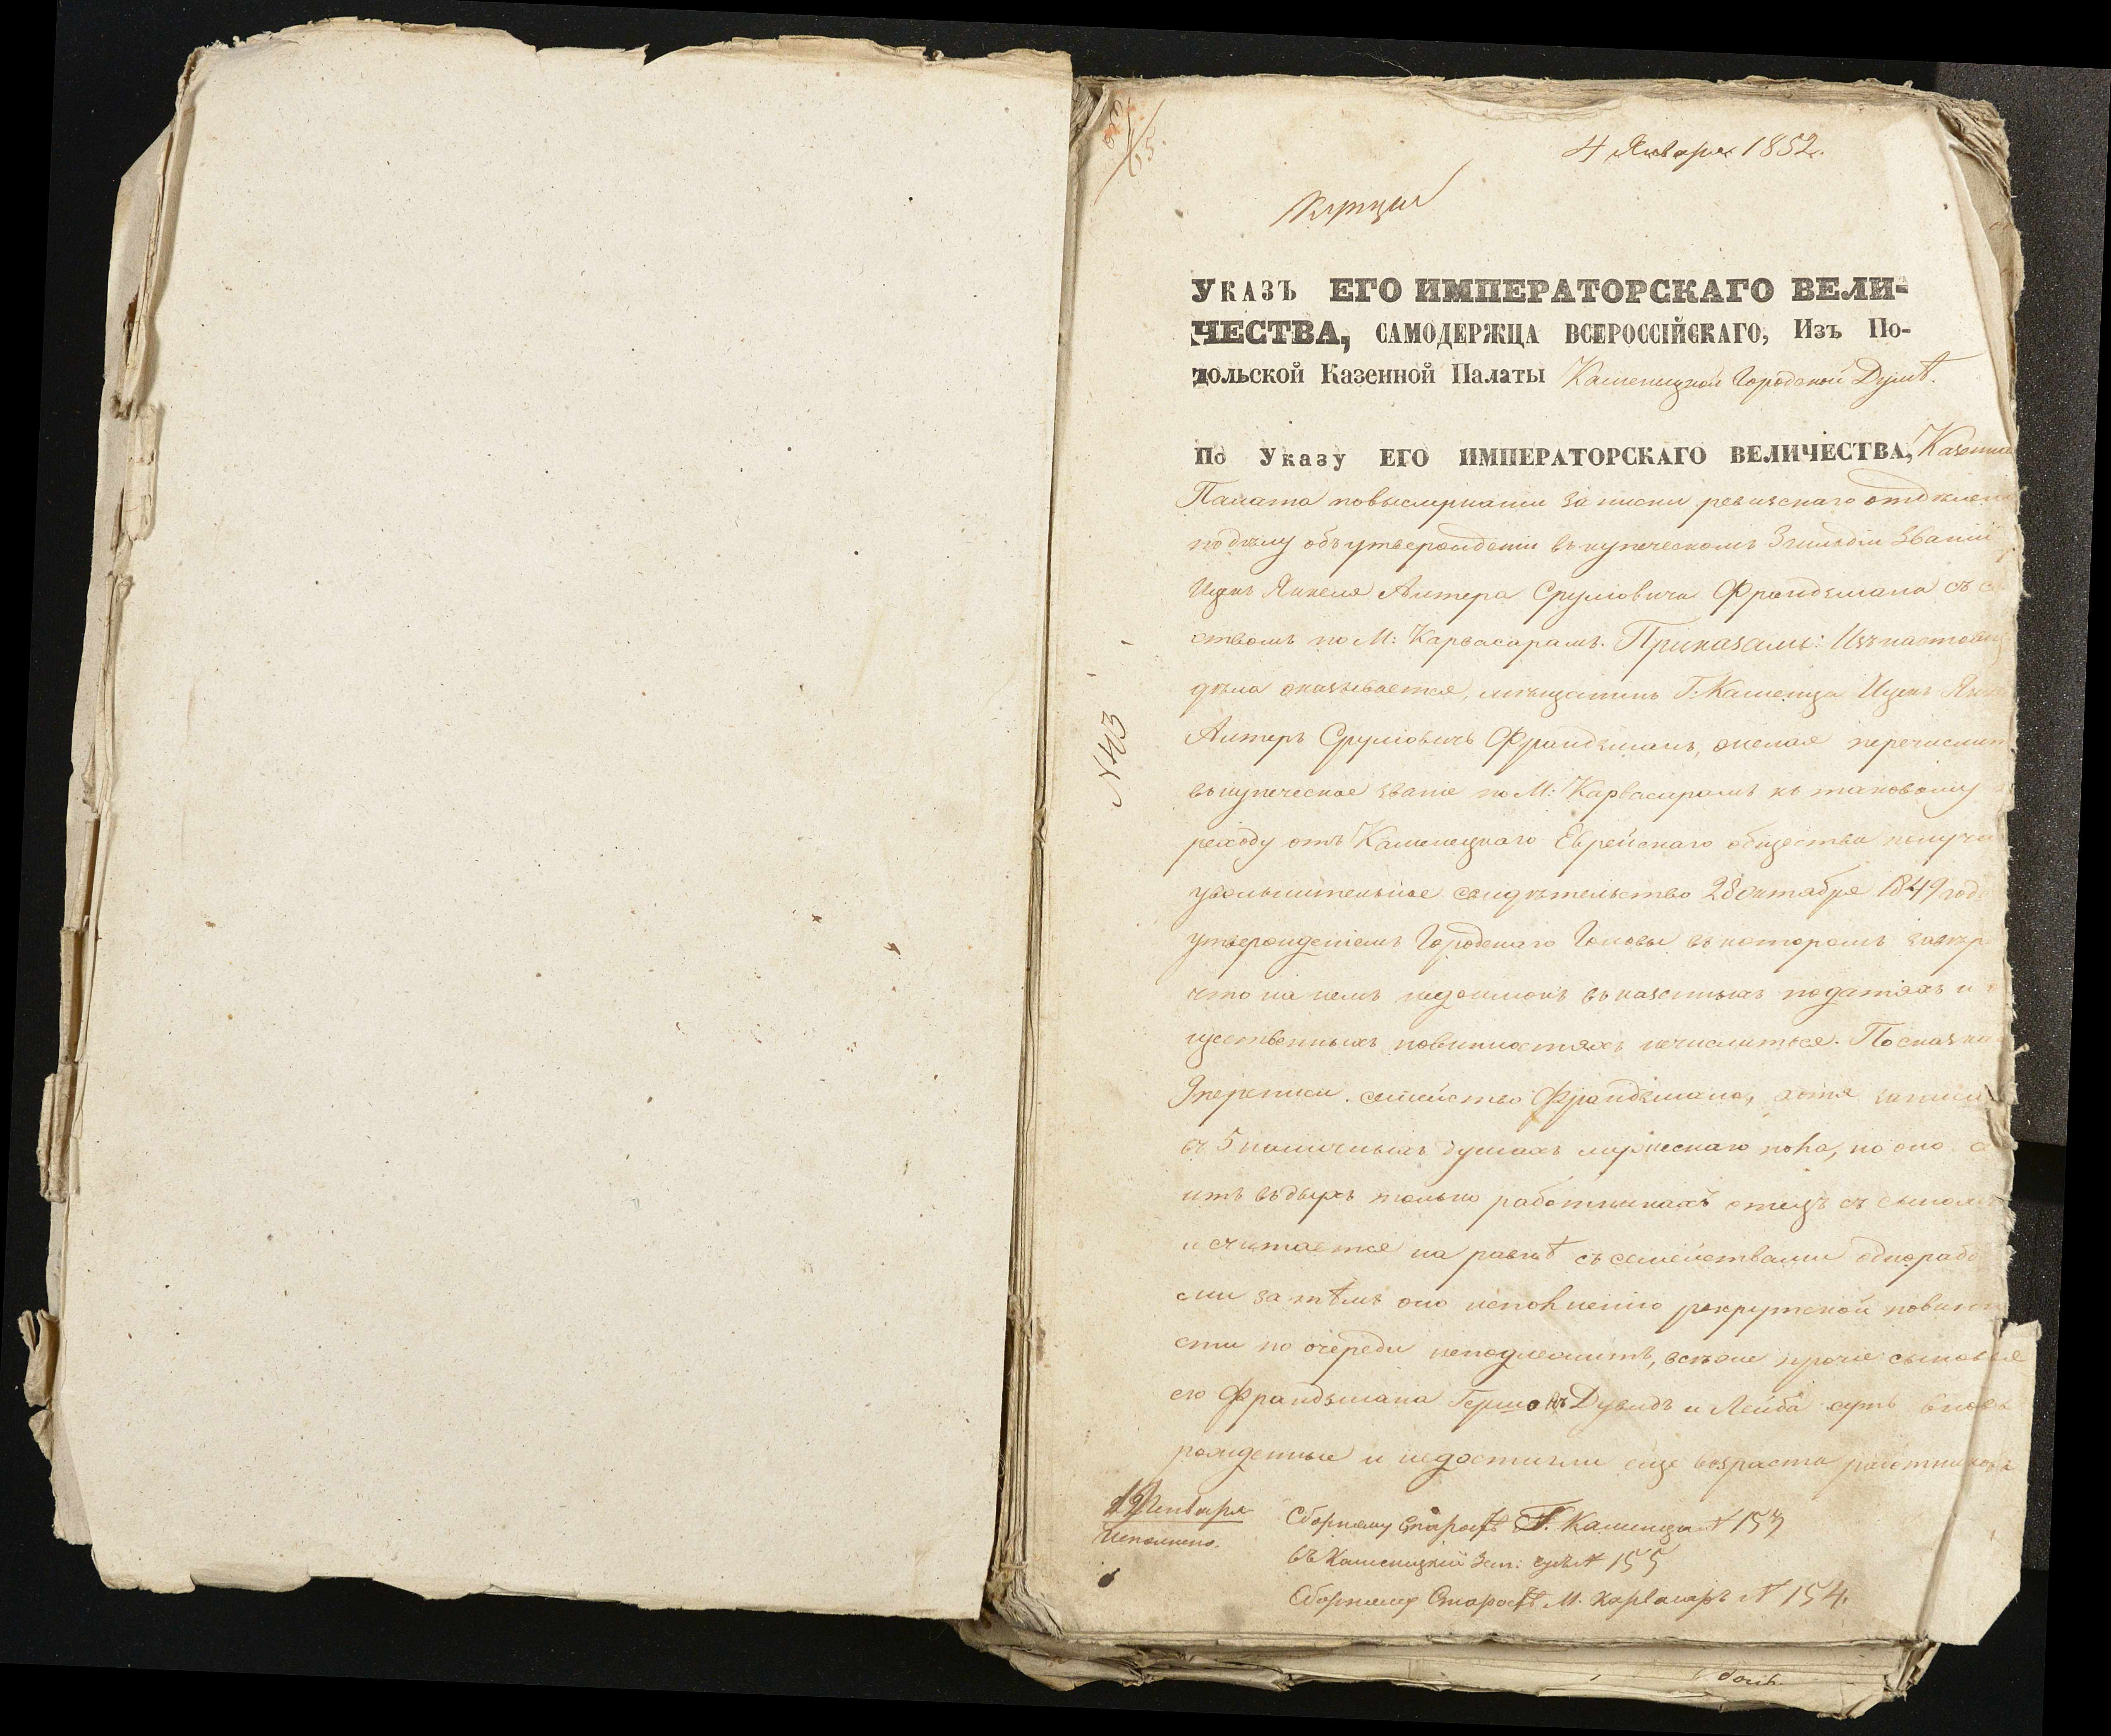 4 Января 1852.
УКАЗЪ ЕГО ИМПЕРАТОРСКАГО ВЕЛИ-
ЧЕСТВА, САМОДЕРЖЦА ВСЕРОССІЙСКАГО, Изъ По-
дольской Казенной Палаты Каменецкой Городской Думѣ.
По Указу ЕГО ИМПЕРАТОРСКАГО ВЕЛИЧЕСТВА, Казенная
Палата по выслушаніи записки ревизскаго отдѣлени
по дѣлу объ утвержденіи въ купеческомъ 3 гильдіи званіи
Ицка Янкеля Алтера Сруловича Франдзмана съ се
ствомъ по М: Карвасарамъ. Приказали: Изъ настоящ
дѣла оказывается, мѣщанинъ Г: Каменца Ицекъ Янке
Алтеръ Сруліовичъ Франдзманъ, желая перечислит
въ купеческое званіе по М: Карвасарамъ къ таковому
реходу отъ Каменецкаго Еврейскаго общества получи
увольнительное свидѣтельство 28 октября 1849 года
утвержденіемъ Городскаго Головы въ которомъ завѣр
что на немъ недоимокъ въ казенныхъ податяхъ и о
щественныхъ повинностяхъ нечислиться. По сказки
9 переписи семейство Франдзмана, хотя записа
въ 5 наличныхъ душахъ мужескаго пола, но оно со
итъ въ двухъ только работникахъ отецъ съ сыномъ
и считается на равнѣ съ семействами однорабо
ми за тѣмъ оно исполненію рекрутской повинно
сти по очереди неподлежитъ, всѣ же прочіе сыновья
его Франдзмана Гершонъ Дувидъ и Лейба суть вновь
рожденные и недостигли еще возраста работниковъ
N 43
Января
Исполнено.
Сборному Старостѣ Г. Каменца N 153
въ Каменецкій Зем: судъ N 155
Сборному Старостѣ М. Карвасаръ N 154.